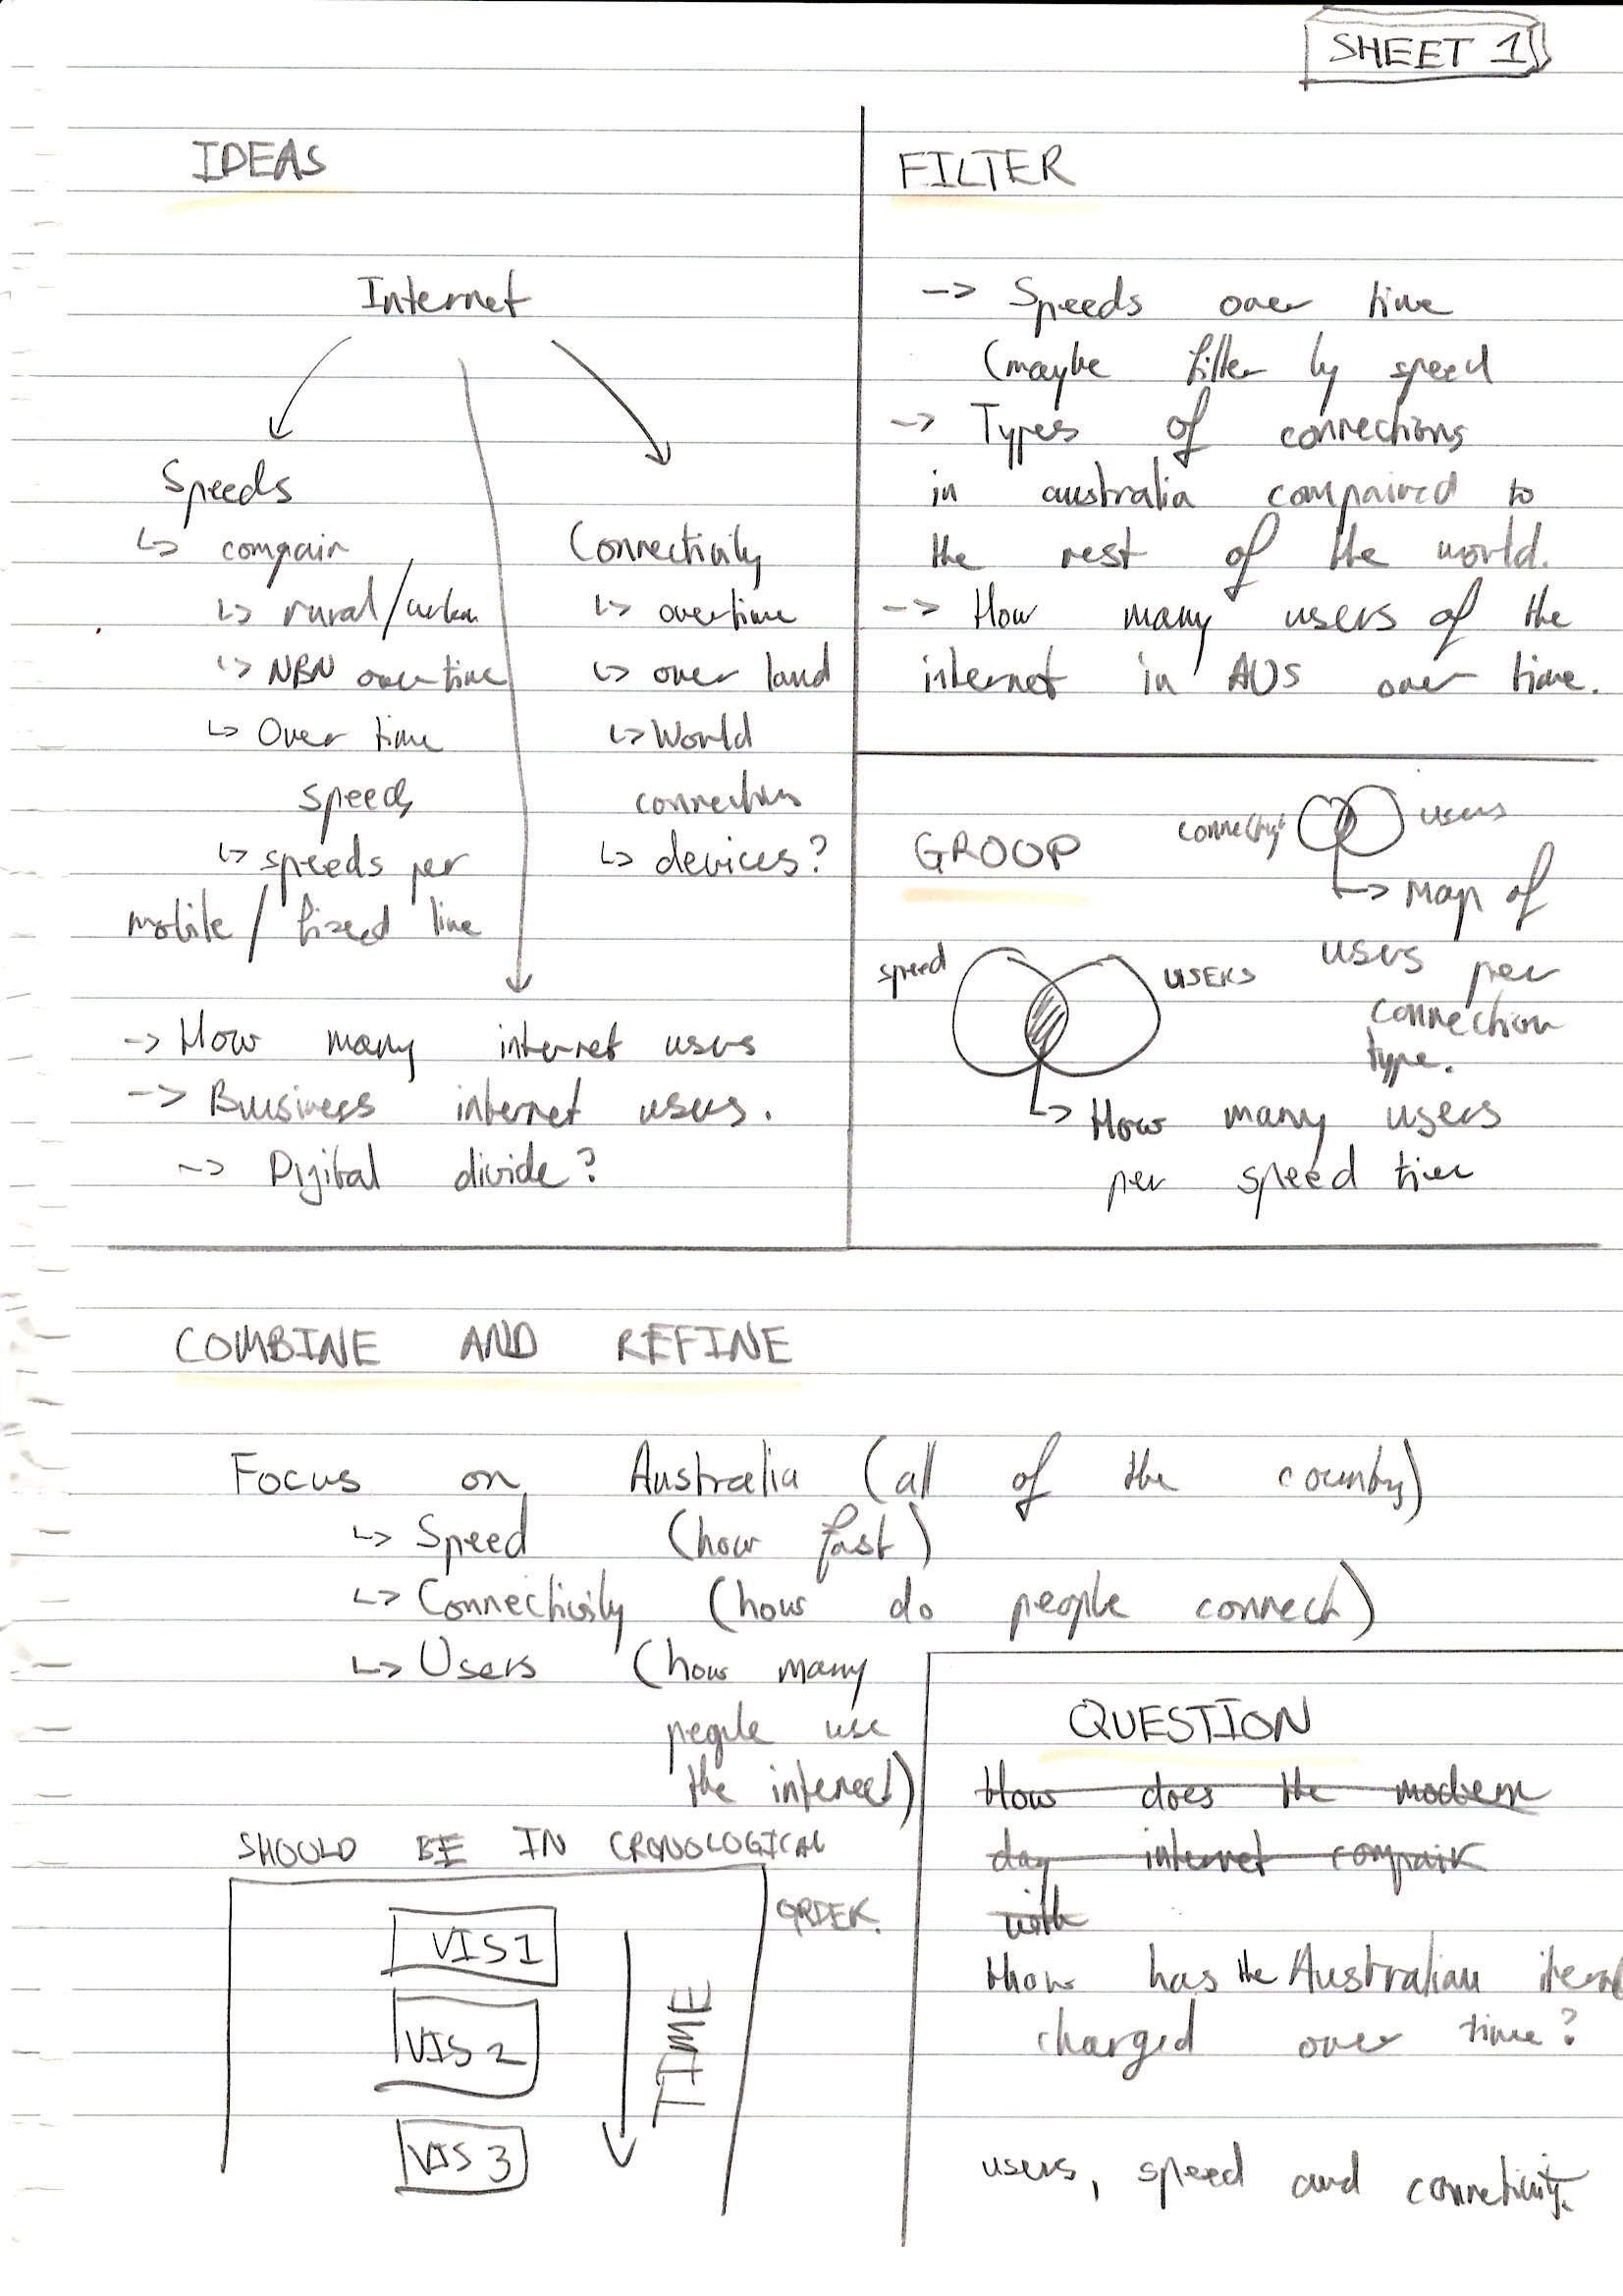 SHEET 1
IDEAS
Internet
Speeds
↳ compair
↳ rural/urban
↳ NBN over time
↳ Over time
speeds
↳ speeds per
mobile / fixed line
Connectivity
↳ overtime
↳ over land
↳ World
connections
↳ devices?
-> How many internet users
-> Buisiness internet users.
-> Digital divide?
FILTER
-> Speeds over time
(maybe filter by speed
-> Types of connections
in australia compaired to
the rest of the world.
-> How many users of the
internet in AUS over time.
GROUP
connectivity
users
↳ Map of
users per
connection
type.
speed
users
↳ How many users
per speed tier
COMBINE AND REFINE
Focus on Australia (all of the country)
↳ Speed (how fast)
↳ Connectivity (how do people connect)
↳ Users (how many
people use
the interent)
SHOULD BE IN CRONOLOGICAL
ORDER.
VIS 1
VIS 2
VIS 3
TIME
QUESTION
How does the modern
day internet compair
with
How has the Australian
changed over time?
users, speed and connectivity.